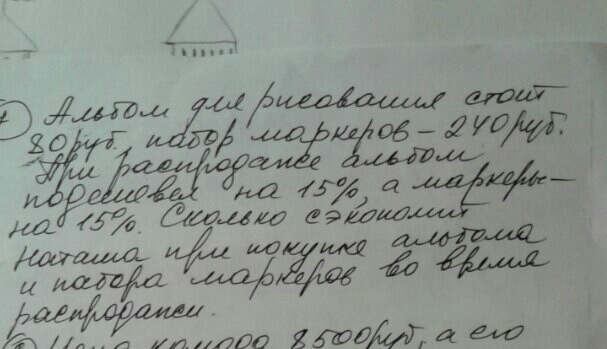 Альбом для рисования стоит
80 руб., набор маркеров – 240 руб.
При распродаже альбом
подешевел на 15%, а маркеры –
на 15%. Сколько сэкономит
Наташа при покупке альбома
и набора маркеров во время
распродажи.
Цена комода 8500 руб, а его